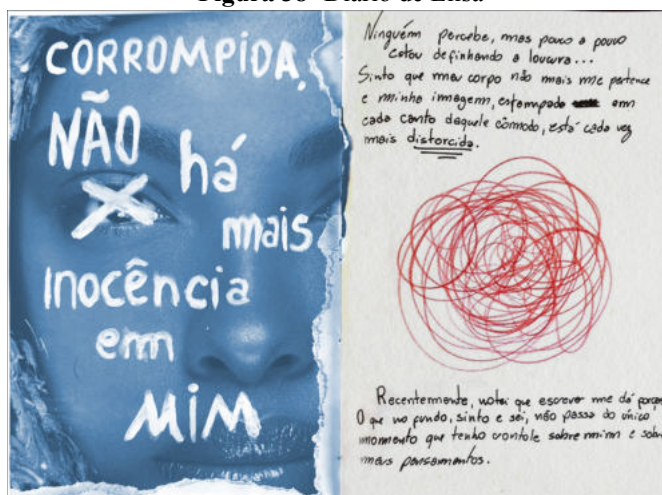 Figura 38- Diário de Elisa
CORROMPIDA,
NÃO há
mais
INOCÊNCIA
em
MIM
Ninguém percebe, mas pouco a pouco
estou definhando a loucura...
Sinto que meu corpo não mais me pertence
e minha imagem, estampada em
cada canto daquele cômodo, está cada vez
mais distorcida.
Recentemente, notei que escrever me dá
O que no fundo, sinto e sei, não passa do único
momento que tenho controle sobre mim e sobre
meus pensamentos.